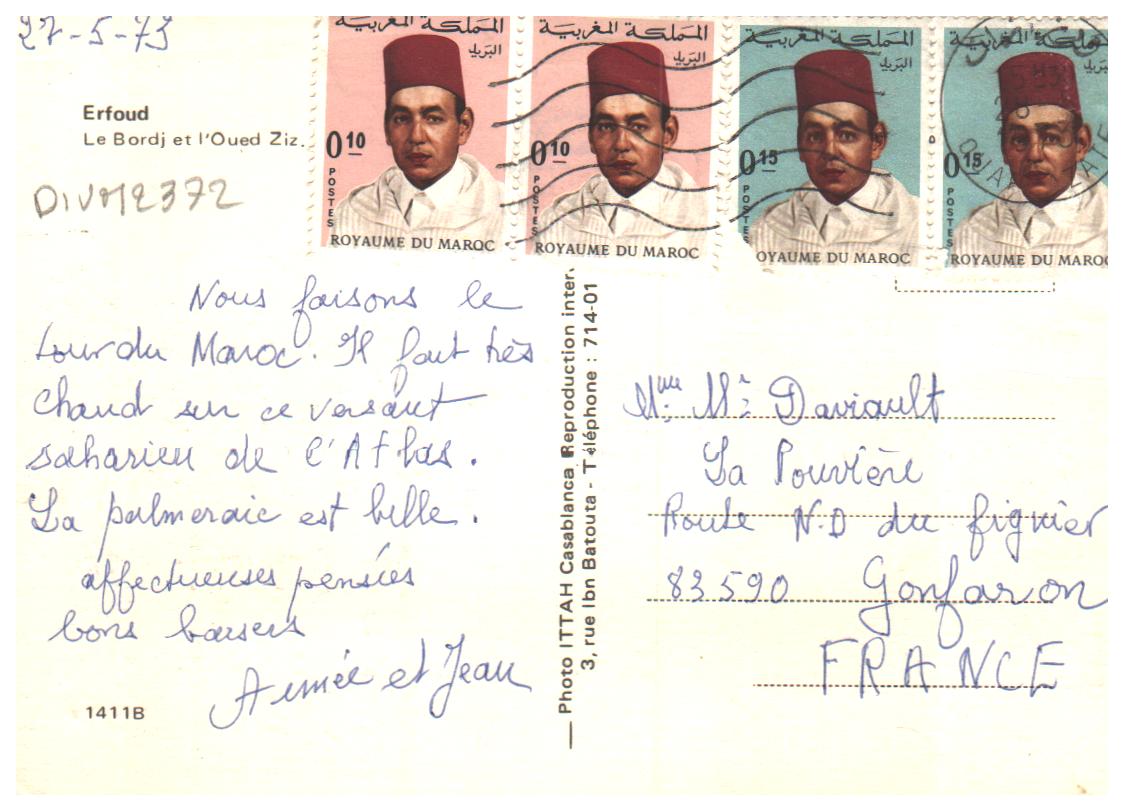 27-5-73
Erfoud
Le Bordj et l'Oued Ziz.
DIVM2372
المملكة المغربية
البريد
0 10
POSTES
ROYAUME DU MAROC
المملكة المغربية
البريد
0 10
POSTES
ROYAUME DU MAROC
المملكة المغربية
البريد
0 15
POSTES
OYAUME DU MAROC
المملكة المغربية
البريد
0 15
POSTES
ROYAUME DU MAROC
Nous faisons le
tour du Maroc. Il fait très
chaud sur ce versant
saharien de l'Atlas.
La palmeraie est belle.
affectueuses pensées
bons baisers
Aimée et Jean
1411B
— Photo ITTAH Casablanca Reproduction inter.
3, rue Ibn Batouta - Téléphone : 714-01
Mme Mr Daviault
La Pouvière
Route N.D du figuier
83590 Gonfaron
FRANCE